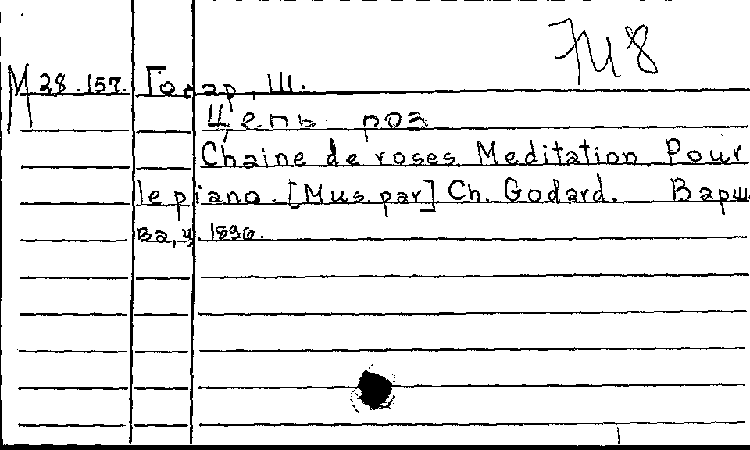 М 28.157. Годар, Ш.
Цепь роз
Chaine de roses. Meditation pour
le piano. [Mus. par] Ch. Godard. Варша
ва, ц. 1896.